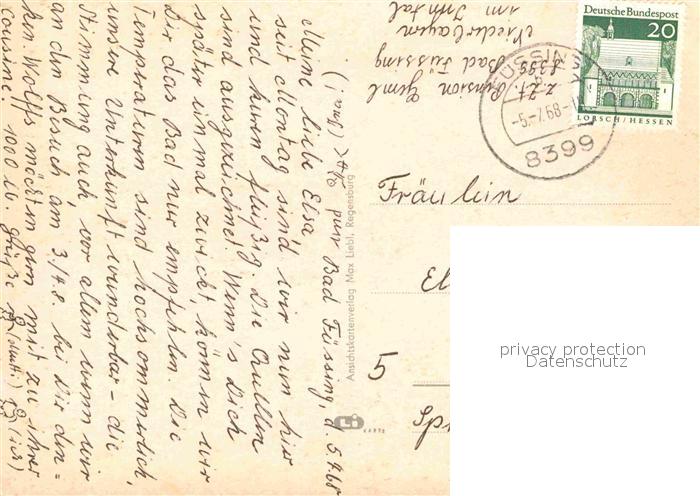 z. Zt. Pension Geml
8399 Bad Füssing
Niederbayern
im Inntal
Deutsche Bundespost
20
LORSCH/HESSEN
FÜSSING
-5.-7.68-
8399
Bad Füssing, d. 5.7.68
Meine liebe Elsa
seit Montag sind wir nun hier
und kuren fleißig. Die Quellen
sind ausgezeichnet! Wenn's Dich
später einmal zwickt, können wir
Dir das Bad nur empfehlen. Die
Temperaturen sind hochsommerlich,
unsere Unterkunft wunderbar - die
Stimmung auch, vor allem wenn wir
an den Besuch am 3./4.8. bei Dir den=
ken. Wolffs möchten gern mit zu ihrer
Cousine! 1000 lb. Grüße
Ansichtskartenverlag Max Liebl, Regensburg
Li
KARTE
Fräulein
El
5
Sp
privacy protection
Datenschutz